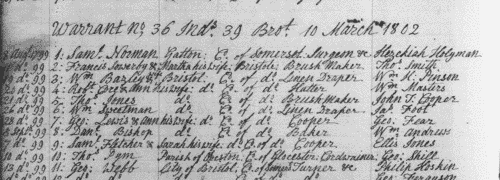 Warrant no. 36 Ind. 39 Brot. 10 March 1802
99 1: Saml. Norman Yatton Co. of Somerset Surgeon & Hezekiah Holyman
do. 99 2: Francis & Martha his wife Bristol: Brush Maker Thos. Smith
do. 99 3: Wm. Bristol Co. of do. Linen Draper Wm. K. Pinson
do. 99 4: Robt. & Ann his wife do. of do. Hatter Wm. Masters
do. 99 5: Thos. Jones do. of do. Brush Maker John T. Cooper
do. 99 6: Wm. do. of do. Linen Draper Jas. Foot
do. 99 7: Geo. Lewis & Ann his wife do. of do. Cooper Geo. Fear
99 8: Danl. Bishop do. of do. Baker Wm. Andrews
7 do. 99 9: Saml. Fletcher & Sarah his wife do. Co. of do. Cooper Ellis Jones
10 do. 99 10: Thos. Pym Parish of Co. of Glocester Cordwainer Geo.
13 do. 99 11: Geo. Webb City of Bristol, Co. of Turner &c. Philip Hoskin
Ferguson